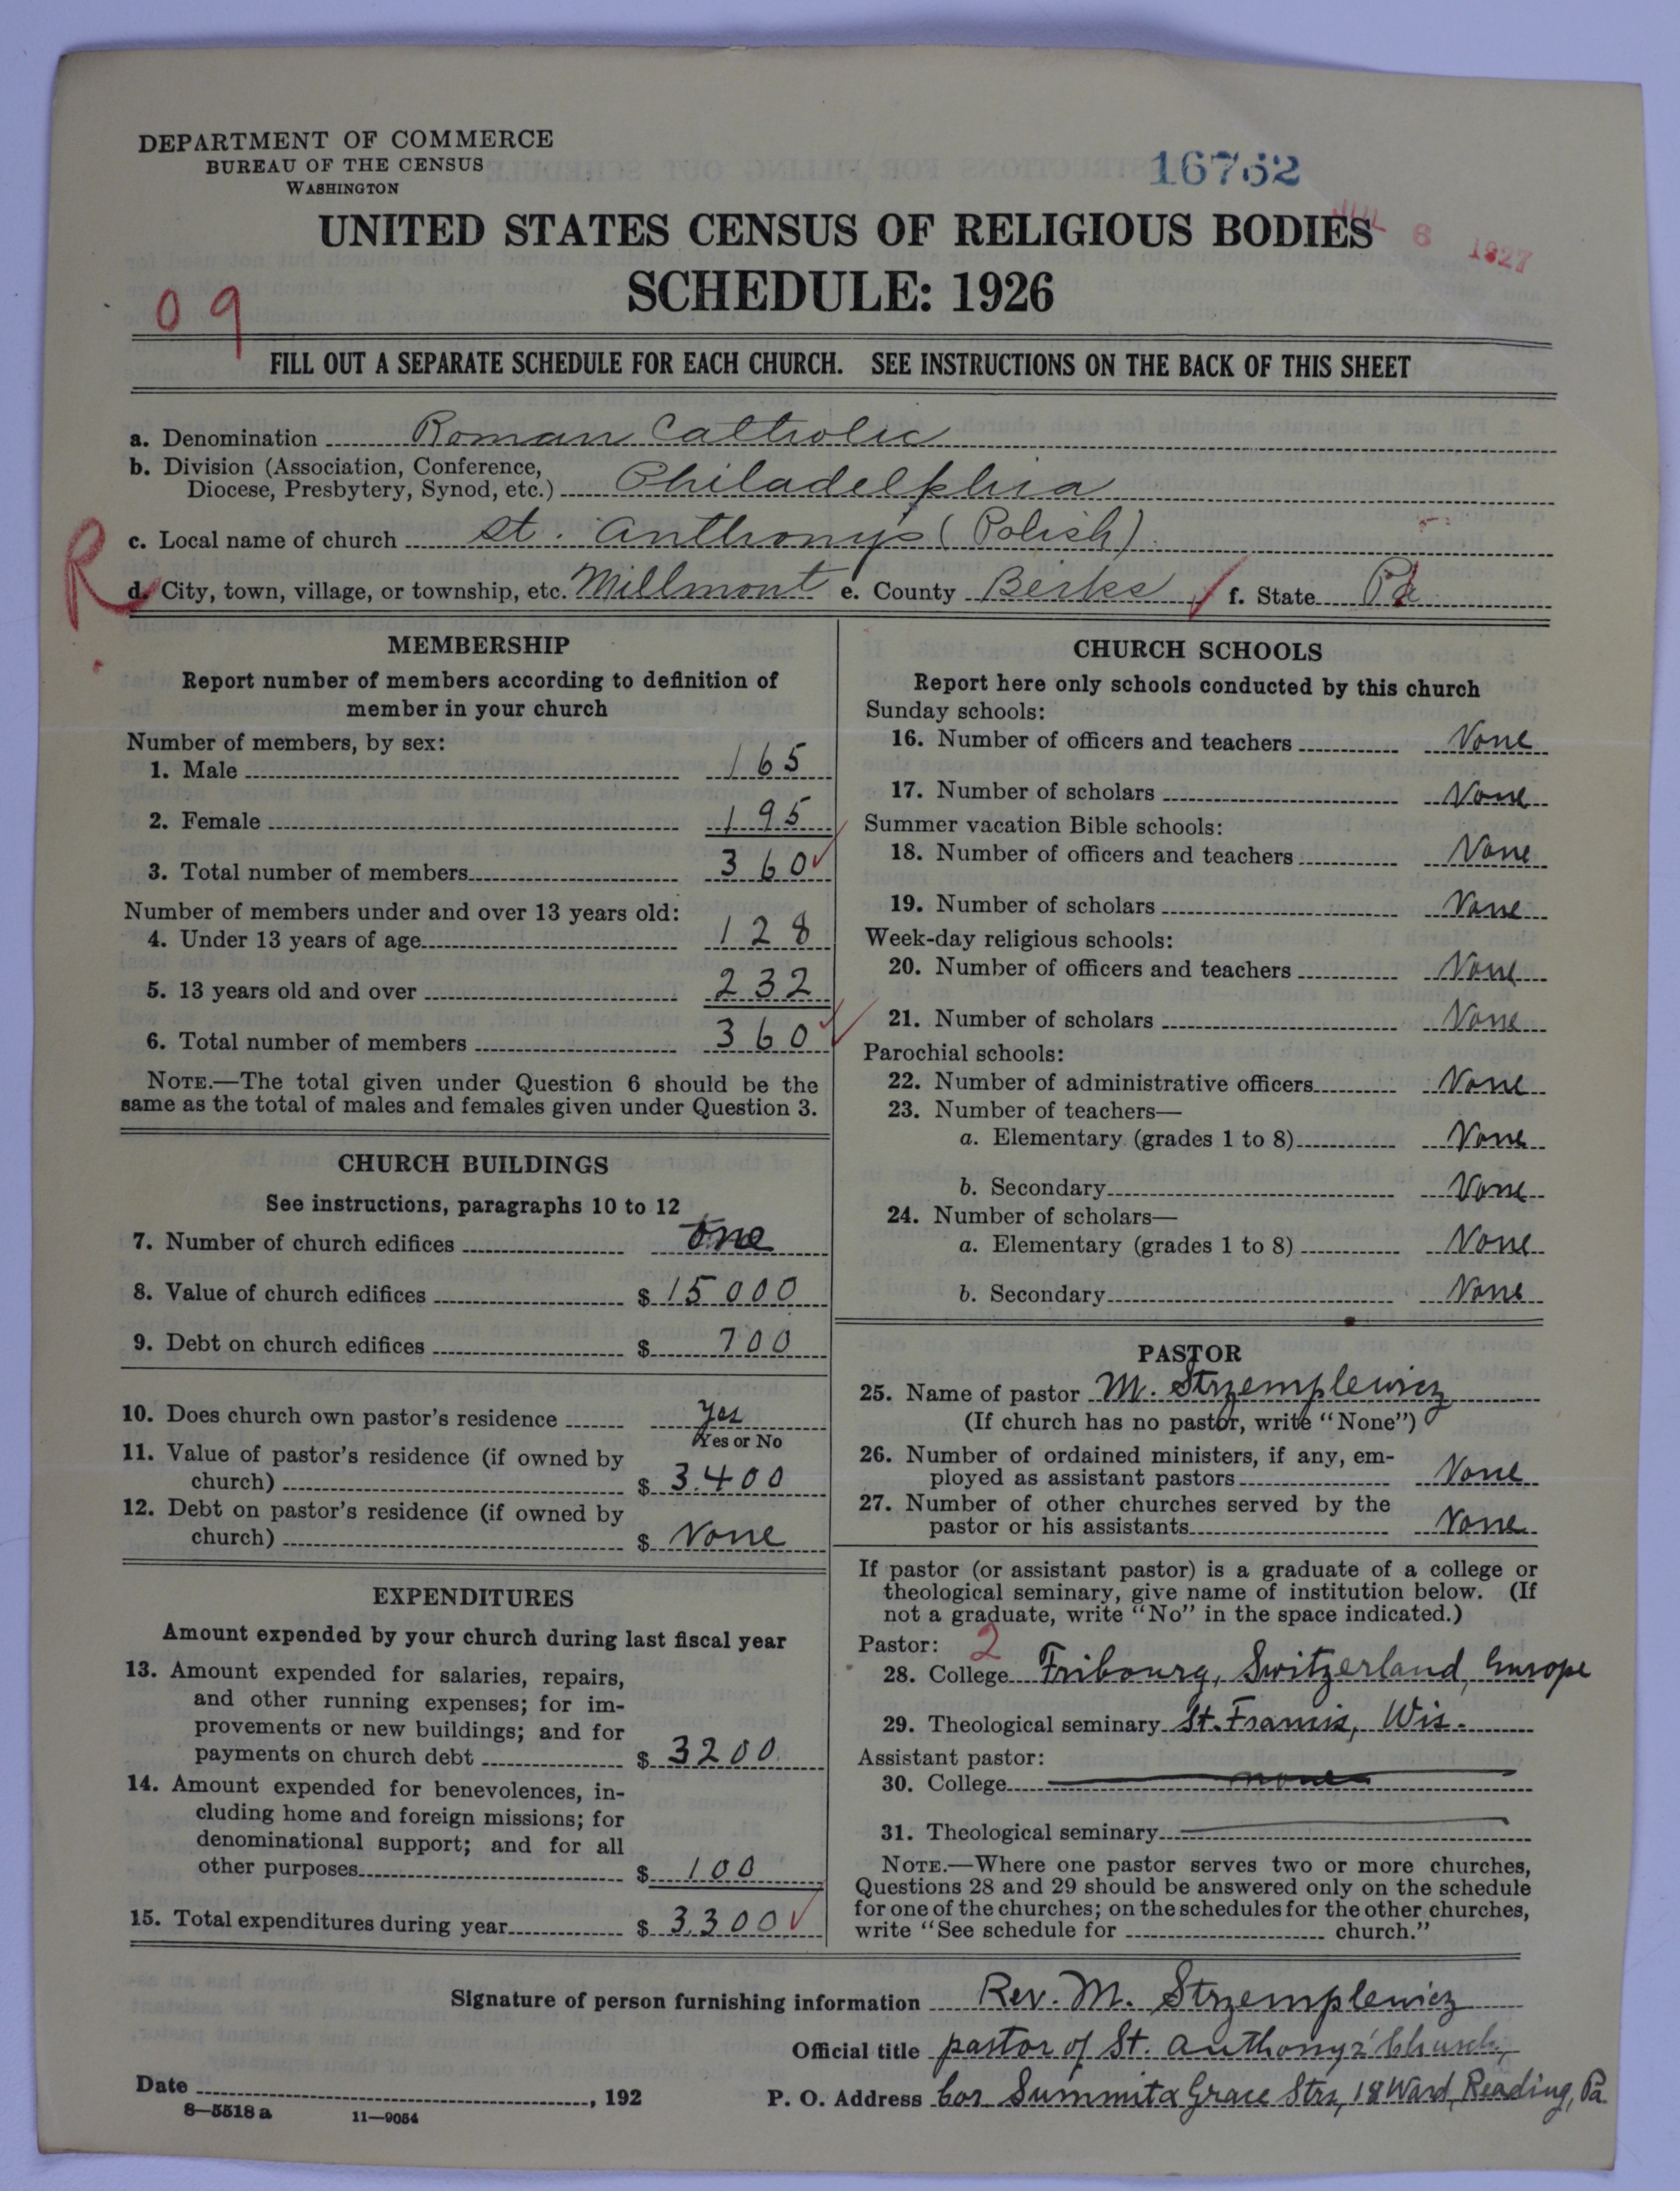 DEPARTMENT OF COMMERCE
BUREAU OF THE CENSUS
WASHINGTON
16762
JUL 6 1927
UNITED STATES CENSUS OF RELIGIOUS BODIES
SCHEDULE: 1926
09
FILL OUT A SEPARATE SCHEDULE FOR EACH CHURCH. SEE INSTRUCTIONS ON THE BACK OF THIS SHEET
a. Denomination Roman Catholic
b. Division (Association, Conference,
Diocese, Presbytery, Synod, etc.) Philadelphia
c. Local name of church St. Anthony's (Polish)
R
d. City, town, village, or township, etc. Millmont e. County Berks f. State Pa
MEMBERSHIP
Report number of members according to definition of
member in your church
Number of members, by sex:
1. Male 165
2. Female 195
3. Total number of members 360
Number of members under and over 13 years old:
4. Under 13 years of age 128
5. 13 years old and over 232
6. Total number of members 360
NOTE.—The total given under Question 6 should be the
same as the total of males and females given under Question 3.
CHURCH BUILDINGS
See instructions, paragraphs 10 to 12
7. Number of church edifices one
8. Value of church edifices $ 15000
9. Debt on church edifices $ 700
10. Does church own pastor's residence yes
Yes or No
11. Value of pastor's residence (if owned by
church) $ 3400
12. Debt on pastor's residence (if owned by
church) $ None
EXPENDITURES
Amount expended by your church during last fiscal year
13. Amount expended for salaries, repairs,
and other running expenses; for im-
provements or new buildings; and for
payments on church debt $ 3200
14. Amount expended for benevolences, in-
cluding home and foreign missions; for
denominational support; and for all
other purposes $ 100
15. Total expenditures during year $ 3300
CHURCH SCHOOLS
Report here only schools conducted by this church
Sunday schools:
16. Number of officers and teachers None
17. Number of scholars None
Summer vacation Bible schools:
18. Number of officers and teachers None
19. Number of scholars None
Week-day religious schools:
20. Number of officers and teachers None
21. Number of scholars None
Parochial schools:
22. Number of administrative officers None
23. Number of teachers—
a. Elementary (grades 1 to 8) None
b. Secondary None
24. Number of scholars—
a. Elementary (grades 1 to 8) None
b. Secondary None
PASTOR
25. Name of pastor M. Strzemplewicz
(If church has no pastor, write "None")
26. Number of ordained ministers, if any, em-
ployed as assistant pastors None
27. Number of other churches served by the
pastor or his assistants None
If pastor (or assistant pastor) is a graduate of a college or
theological seminary, give name of institution below. (If
not a graduate, write "No" in the space indicated.)
Pastor: 2
28. College Fribourg, Switzerland, Europe
29. Theological seminary St. Francis, Wis.
Assistant pastor:
30. College none
31. Theological seminary
NOTE.—Where one pastor serves two or more churches,
Questions 28 and 29 should be answered only on the schedule
for one of the churches; on the schedules for the other churches,
write "See schedule for church."
Signature of person furnishing information Rev. M. Strzemplewicz
Official title pastor of St. Anthony's Church,
Date , 192
P. O. Address Cor Summit & Grace Strs, 18 Ward, Reading, Pa.
8—5518 a 11—9054